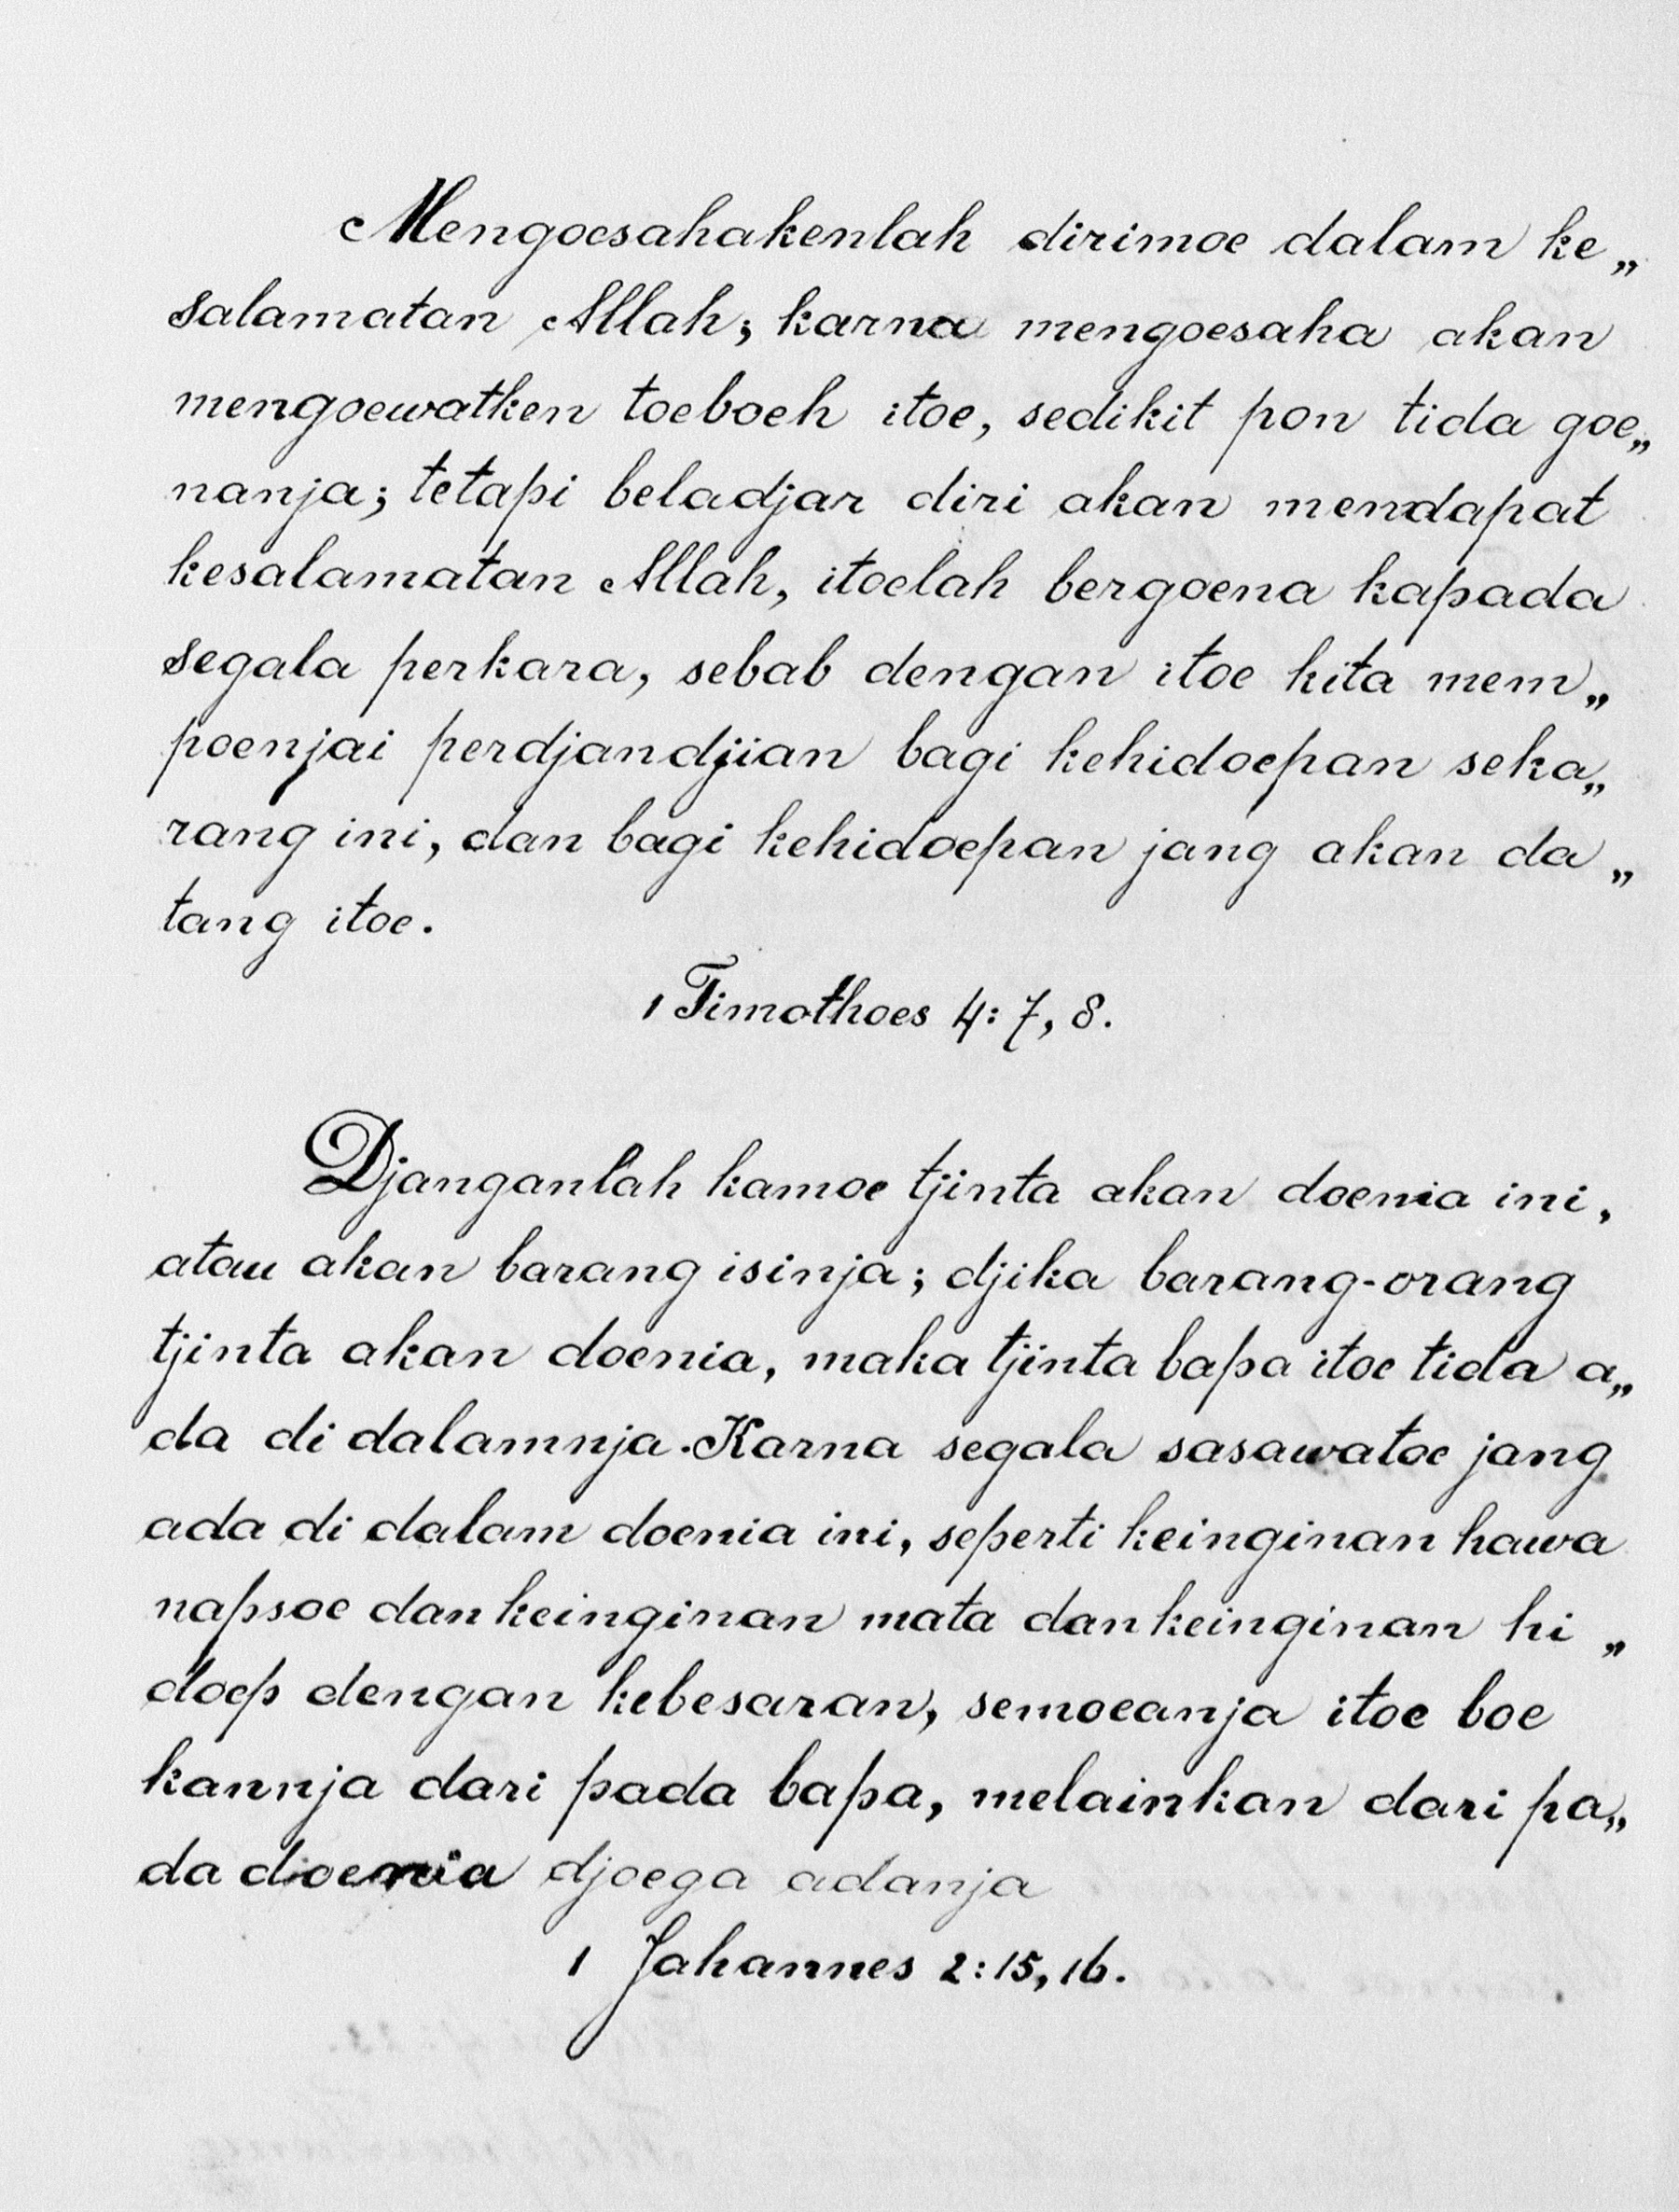 Mengoesahakenlah dirimoe dalam ke„
salamatan Allah; karna mengoesaha akan
mengoewatken toeboeh itoe, sedikit pon tida goe„
nanja; tetapi beladjar diri akan mendapat
kesalamatan Allah, itoelah bergoena kapada
segala perkara, sebab dengan itoe kita mem„
poenjai perdjandjian bagi kehidoepan seka„
rang ini, dan bagi kehidoepan jang akan da„
tang itoe.
1 Timothoes 4: 7, 8.
Djanganlah kamoe tjinta akan doenia ini,
atau akan barang isinja; djika barang-orang
tjinta akan doenia, maka tjinta bapa itoe tida a„
da di dalamnja. Karna segala sasawatoe jang
ada di dalam doenia ini, seperti keinginan hawa
napsoe dan keinginan mata dan keinginan hi„
doep dengan kebesaran, semoeanja itoe boe
kannja dari pada bapa, melainkan dari pa„
da doenia djoega adanja
1 Johannes 2: 15, 16.